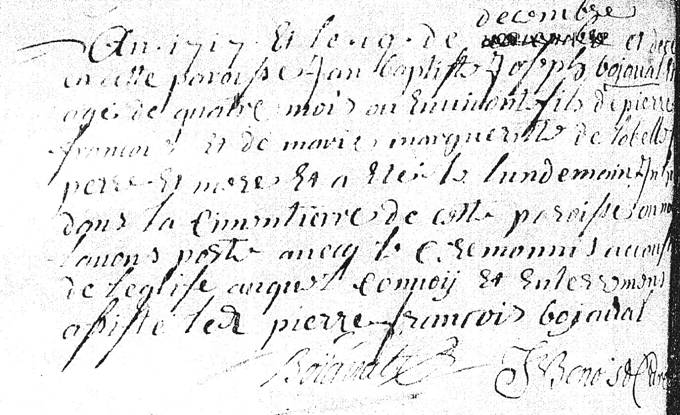 decembre
An 1717 Et le 19 de et dece
en cette paroisse Jan baptiste Joseph bojaval et
agé de quatre mois ou Environt fils de pierre
francois Et de marie margueritte de lobelle
perre Et mere Et a Eté le lundemain Inh
dans la Cimentierre de cette paroisse ou nou
lauons porté aueq le Ceremonnis accous
de leglise auquel Conuoÿ Et Enterrement
assiste led pierre francois bojaval
Bojaval J Benoist Curé